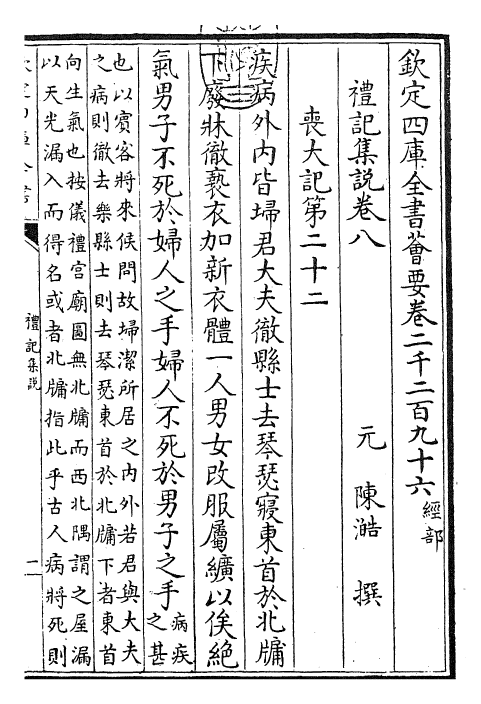 欽定四庫全書薈要卷二千二百九十六 經部
禮記集說卷八
元 陳澔 撰
喪大記第二十二
疾病外内皆埽君大夫徹縣士去琴瑟寢東首於北牖
下廢牀徹褻衣加新衣體一人男女改服屬纊以俟絶
氣男子不死於婦人之手婦人不死於男子之手 病疾
之甚
也以賓客將來候問故埽潔所居之内外若君與大夫
之病則徹去樂縣士則去琴瑟東首於北牖下者東首
向生氣也按儀禮宮廟圖無北牖而西北隅謂之屋漏
以天光漏入而得名或者北牖指此乎古人病將死則
禮記集說